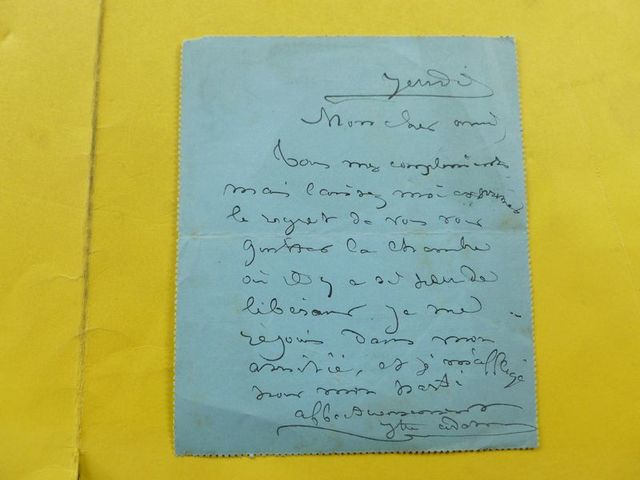 Jeudi
Mon cher ami,
Tous mes compliments
mais laissez moi exprimer
le regret de vous voir
quitter la chambre
où il y a si peu de
libéraux. Je me
réjouis dans mon
amitié, et je m'afflige
pour mon parti
affectueusement
Adam